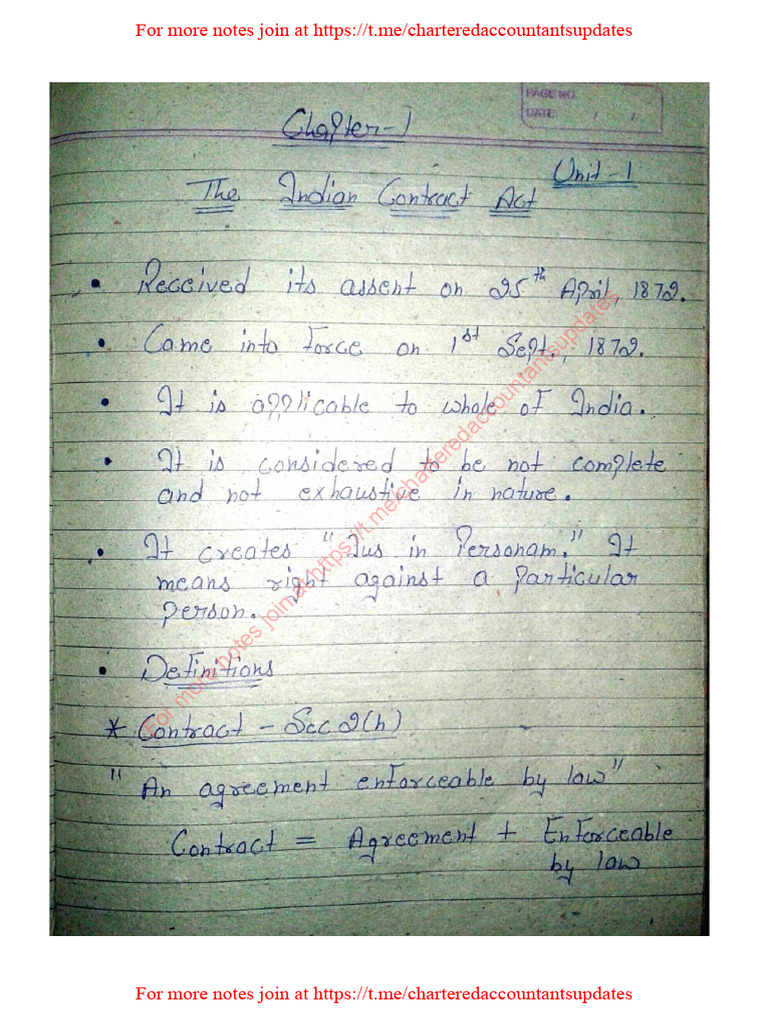 For more notes join at https://t.me/charteredaccountantsupdates
PAGE NO.
DATE: / /
Chapter-1
Unit-1
The Indian Contract Act
• Received its assent on 25th April, 1872.
• Came into Force on 1st Sept., 1872.
• It is applicable to whole of India.
• It is considered to be not complete
and not exhaustive in nature.
• It creates "Jus in Personam." It
means right against a particular
person.
• Definitions
* Contract - Sec 2(h)
" An agreement enforceable by law"
Contract = Agreement + Enforceable
by law
For more notes join at https://t.me/charteredaccountantsupdates
For more notes join at https://t.me/charteredaccountantsupdates